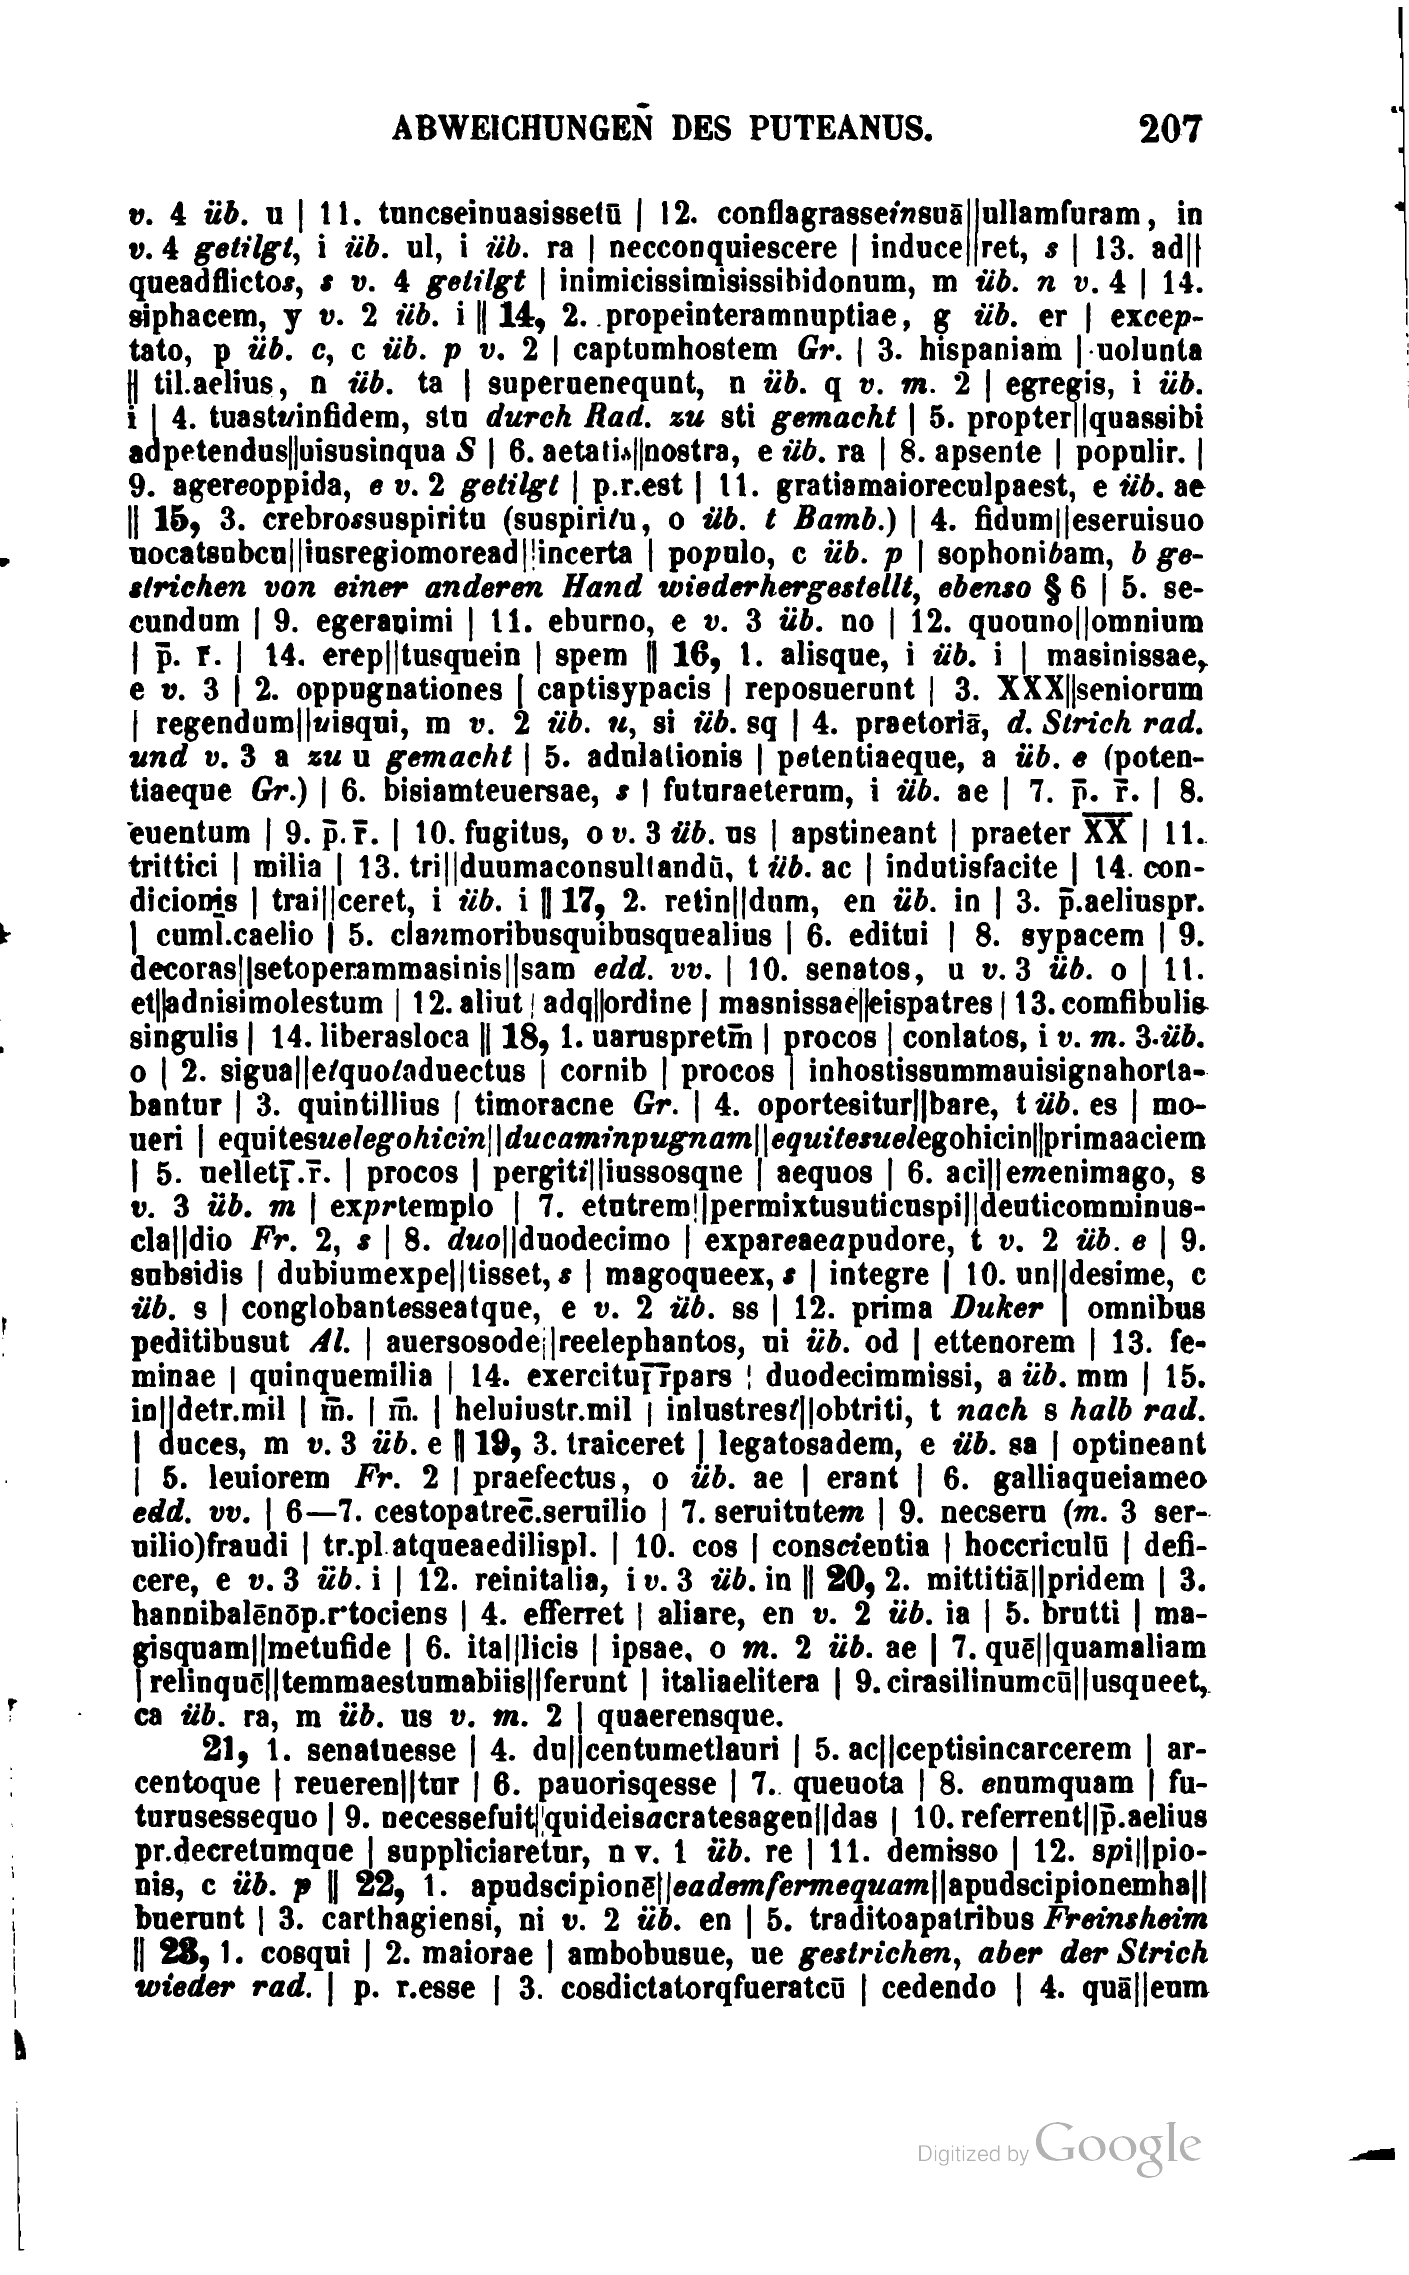 ABWEICHUNGEN DES PUTEANUS. 207
v. 4 üb. u | 11. tuncseinuasissetū | 12. conflagrasseinsuā||ullamfuram, in
v. 4 getilgt, i üb. ul, i üb. ra | necconquiescere | induce||ret, s | 13. ad||
queadflictos, s v. 4 getilgt | inimicissimisissibidonum, m üb. n v. 4 | 14.
siphacem, y v. 2 üb. i || 14, 2. propeinteramnuptiae, g üb. er | excep-
tato, p üb. c, c üb. p v. 2 | captumhostem Gr. | 3. hispaniam | uolunta
|| til.aelius, n üb. ta | superuenequnt, n üb. q v. m. 2 | egregis, i üb.
i | 4. tuastuinfidem, stu durch Rad. zu sti gemacht | 5. propter||quassibi
adpetendus||uisusinqua S | 6. aetatis||nostra, e üb. ra | 8. apsente | populir. |
9. agereoppida, e v. 2 getilgt | p.r.est | 11. gratiamaioreculpaest, e üb. ae
|| 15, 3. crebrossuspiritu (suspiritu, o üb. t Bamb.) | 4. fidum||eseruisuo
uocatsubcu||iusregiomoread||incerta | populo, c üb. p | sophonibam, b ge-
strichen von einer anderen Hand wiederhergestellt, ebenso § 6 | 5. se-
cundum | 9. egeranimi | 11. eburno, e v. 3 üb. no | 12. quouno||omnium
| p̄. r. | 14. erep||tusquein | spem || 16, 1. alisque, i üb. i | masinissae,
e v. 3 | 2. oppugnationes | captisypacis | reposuerunt | 3. XXX||seniorum
| regendum||uisqui, m v. 2 üb. u, si üb. sq | 4. praetoriā, d. Strich rad.
und v. 3 a zu u gemacht | 5. adulationis | petentiaeque, a üb. e (poten-
tiaeque Gr.) | 6. bisiamteuersae, s | futuraeterum, i üb. ae | 7. p̄. r̄. | 8.
euentum | 9. p̄. r̄. | 10. fugitus, o v. 3 üb. us | apstineant | praeter X̅X̅ | 11.
trittici | milia | 13. tri||duumaconsultandū, t üb. ac | indutisfacite | 14. con-
dicionis | trai||ceret, i üb. i || 17, 2. retin||dum, en üb. in | 3. p̄.aeliuspr.
| cuml̄.caelio | 5. clanmoribusquibusquealius | 6. editui | 8. sypacem | 9.
decoras||setoperammasinis||sam edd. vv. | 10. senatos, u v. 3 üb. o | 11.
et||adnisimolestum | 12. aliut | adq||ordine | masnissae||eispatres | 13. comfibulis
singulis | 14. liberasloca || 18, 1. uaruspretm̄ | procos | conlatos, i v. m. 3 üb.
o | 2. sigua||etquotaduectus | cornib | procos | inhostissummauisignahorta-
bantur | 3. quintillius | timoracne Gr. | 4. oportesitur||bare, t üb. es | mo-
ueri | equitesuelegohicin||ducaminpugnam||equitesuelegohicin||primaaciem
| 5. uelletp̄.r̄. | procos | pergiti||iussosque | aequos | 6. aci||emenimago, s
v. 3 üb. m | exprtemplo | 7. etutrem||permixtusuticuspi||deuticomminus-
cla||dio Fr. 2, s | 8. duo||duodecimo | expareaeapudore, t v. 2 üb. e | 9.
subsidis | dubiumexpe||tisset, s | magoqueex, s | integre | 10. un||desime, c
üb. s | conglobantesseatque, e v. 2 üb. ss | 12. prima Duker | omnibus
peditibusut Al. | auersosode||reelephantos, ui üb. od | ettenorem | 13. fe-
minae | quinquemilia | 14. exercitur̄r̄pars | duodecimmissi, a üb. mm | 15.
in||detr.mil | m̄. | m̄. | heluiustr.mil | inlustrest||obtriti, t nach s halb rad.
| duces, m v. 3 üb. e || 19, 3. traiceret | legatosadem, e üb. sa | optineant
| 5. leuiorem Fr. 2 | praefectus, o üb. ae | erant | 6. galliaqueiameo
edd. vv. | 6—7. cestopatrec̄.seruilio | 7. seruitutem | 9. necseru (m. 3 ser-
uilio)fraudi | tr.pl.atqueaedilispl. | 10. cos | conscientia | hoccriculū | defi-
cere, e v. 3 üb. i | 12. reinitalia, i v. 3 üb. in || 20, 2. mittitiā||pridem | 3.
hannibalēnōp.rtociens | 4. efferret | aliare, en v. 2 üb. ia | 5. brutti | ma-
gisquam||metufide | 6. ita||licis | ipsae, o m. 2 üb. ae | 7. quē||quamaliam
| relinquē||temmaestumabiis||ferunt | italiaelitera | 9. cirasilinumcū||usqueet,
ca üb. ra, m üb. us v. m. 2 | quaerensque.
21, 1. senatuesse | 4. du||centumetlauri | 5. ac||ceptisincarcerem | ar-
centoque | reueren||tur | 6. pauorisqesse | 7. queuota | 8. enumquam | fu-
turusessequo | 9. necessefuit||quideisacratesagen||das | 10. referrent||p̄.aelius
pr.decretumque | suppliciaretur, n v. 1 üb. re | 11. demisso | 12. spi||pio-
nis, c üb. p || 22, 1. apudscipionē||eademfermequam||apudscipionemha||
buerunt | 3. carthagiensi, ni v. 2 üb. en | 5. traditoapatribus Freinsheim
|| 23, 1. cosqui | 2. maiorae | ambobusue, ue gestrichen, aber der Strich
wieder rad. | p. r.esse | 3. cosdictatorqfueratcū | cedendo | 4. quā||eum
Digitized by Google